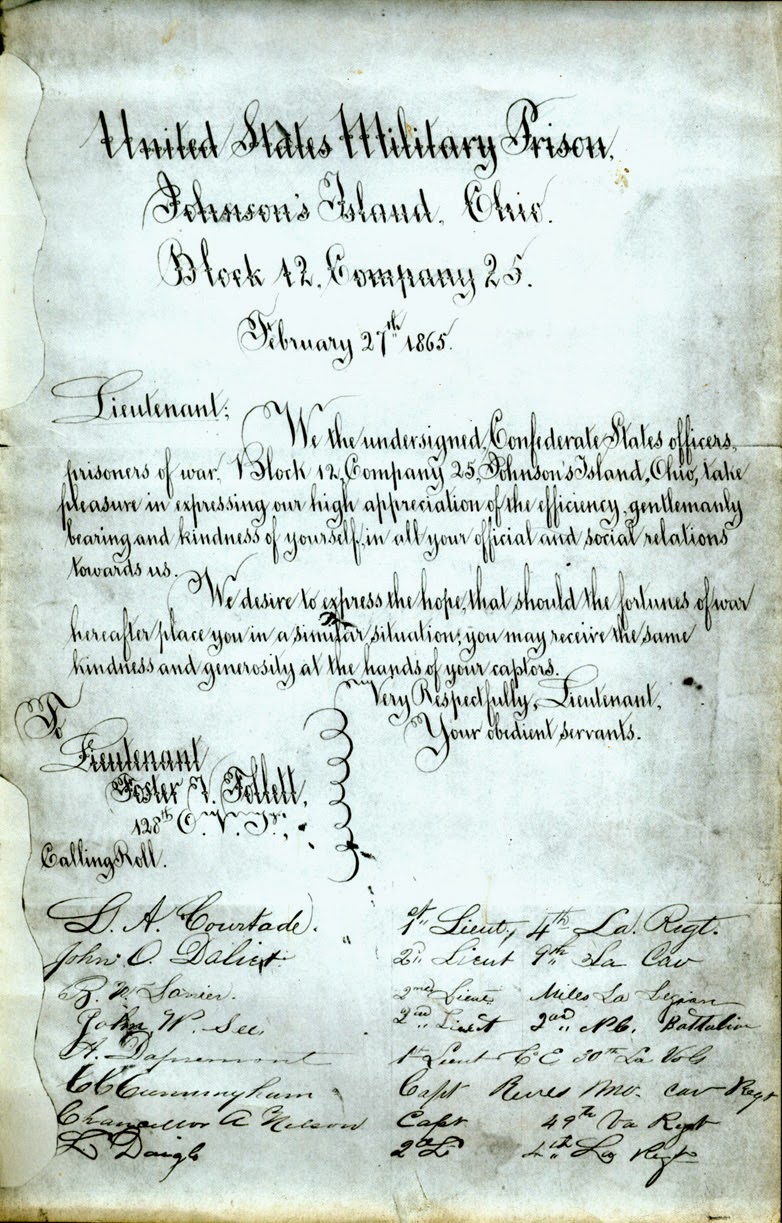 United States Military Prison,
Johnson's Island, Ohio.
Block 12, Company 25.
February 27th 1865.
Lieutenant;
We the undersigned, Confederate States officers,
prisoners of war, Block 12, Company 25, Johnson's Island, Ohio, take
pleasure in expressing our high appreciation of the efficiency, gentlemanly
bearing and kindness of yourself, in all your official and social relations
towards us.
We desire to express the hope, that should the fortunes of war
hereafter place you in a similar situation; you may receive the same
kindness and generosity at the hands of your captors.
Very Respectfully, Lieutenant,
Your obedient servants.
To
Lieutenant
Foster V. Follett,
128th O. V. I.,
Calling Roll.
L. A. Courtade. 1st Lieut, 4th La. Regt.
John O. 2d Lieut 9th La Cav
B. W. Lanier. 2nd Lieut Miles La Legion
John W. See 2nd Lieut 2nd N.C. Battalion
A. 1st Lieut C E 30th La Vols
Cunningham Capt Reves Mo. cav Regt
Chancellor A Nelson Capt 49th Va Regt
L. Daigle 2d Lt 4th La Regt